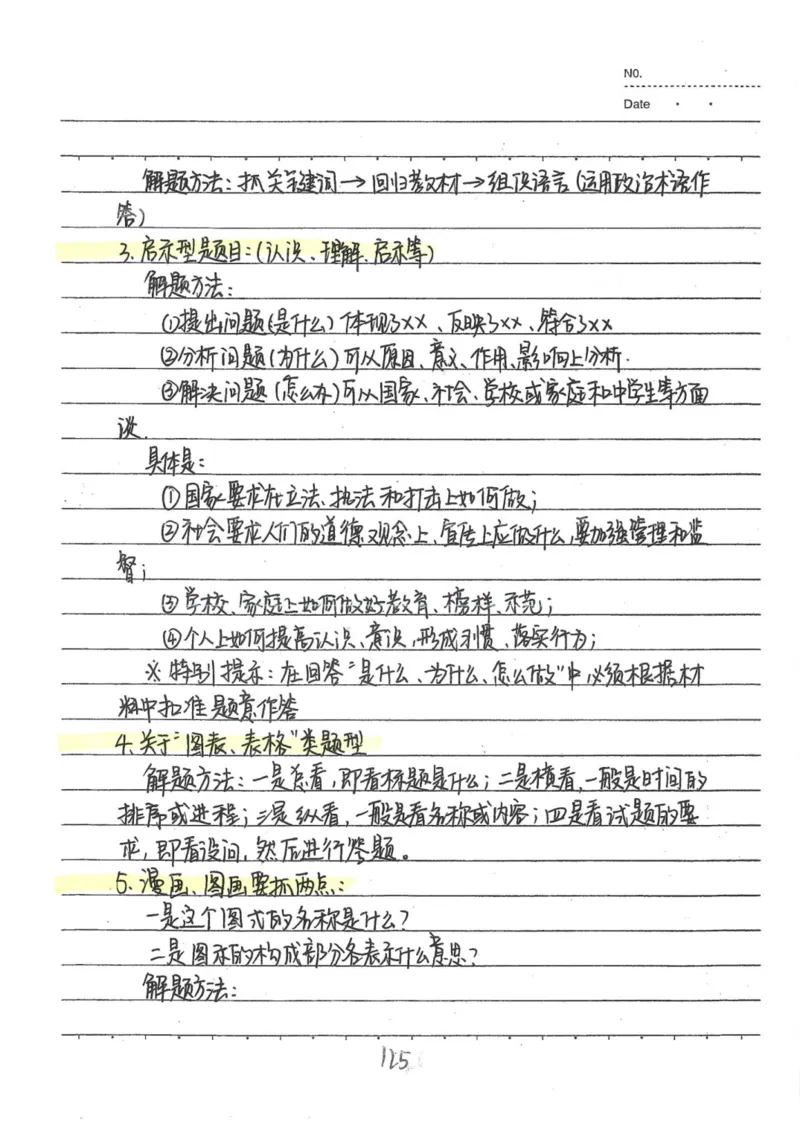 NO.
Date
解题方法:抓关键词→回归教材→组织语言(运用政治术语作
答)
3.启示型题目:(认识、理解、启示等)
解题方法:
①提出问题(是什么)体现了××、反映了××、符合了××
②分析问题(为什么)可从原因、意义、作用、影响上分析.
③解决问题(怎么办)可从国家、社会、学校或家庭和中学生等方面
谈.
具体是:
①国家要求在立法、执法和打击上如何做;
②社会要求人们的道德观念上、宣传上应做什么,要加强管理和监
督;
③学校、家庭上如何做好教育、榜样、示范;
④个人上如何提高认识、意识,形成习惯、落实行为;
※特别提示:在回答“是什么、为什么、怎么做”中必须根据材
料中扣准题意作答
4.关于“图表、表格”类题型
解题方法:一是总看,即看标题是什么;二是横看,一般是时间的
排序或进程;三是纵看,一般是看名称或内容;四是看试题的要
求,即看设问,然后进行答题。
5.漫画、图画要抓两点:
一是这个图式的名称是什么?
二是图示的构成部分各表示什么意思?
解题方法:
125